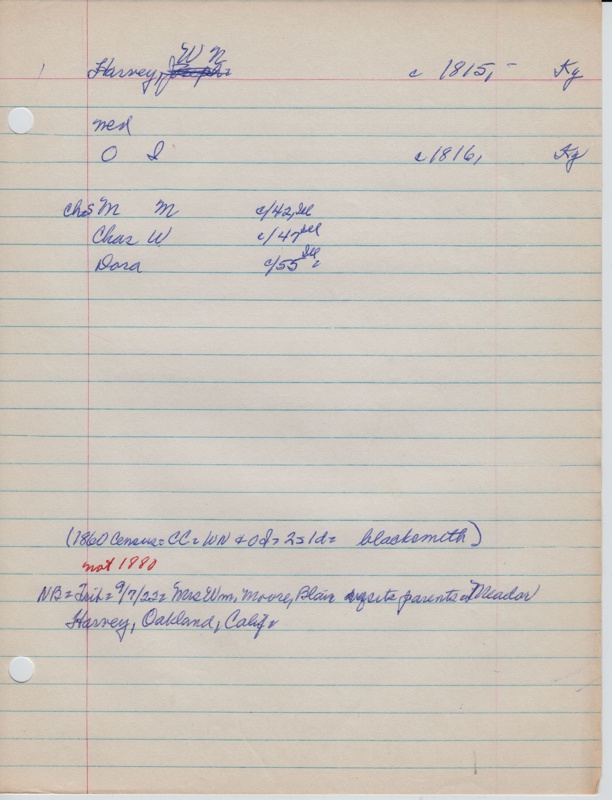 W N
Harvey, c 1815, Ky
med
O I c 1816, Ky
chs M M c/42, Ill
Chas W. c/47 Ill
Dora c/55 Ill
(1860 Census = CC = WN & O I = 2s 1d = blacksmith)
not 1880
NB = Trib = 9/7/22 = Mrs Wm. Moore, Blair parents Meador
Harvey, Oakland, Calif.